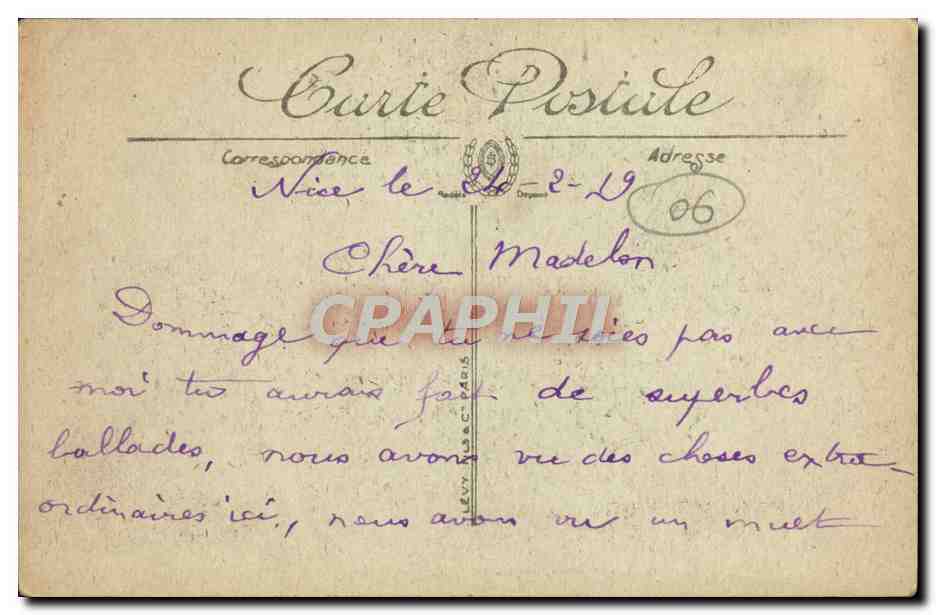 Carte Postale
Correspondance
Adresse
Nice le 24-2-19
06
Chère Madelon
CPAPHIL
Dommage que tu ne soies pas avec
moi tu aurais fait de superbes
ballades, nous avons vu des choses extra-
ordinaires ici, nous avons vu un muet
LÉVY FILS & Cie PARIS